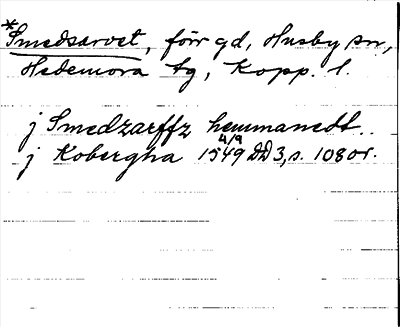 *Smedsarvet, förr gd, Husby sn,
Hedemora tg, Kopp. l.
j Smedzarffz hemmanedt..
j Kobergha 1549 4/9 DD 3, s. 1080r.